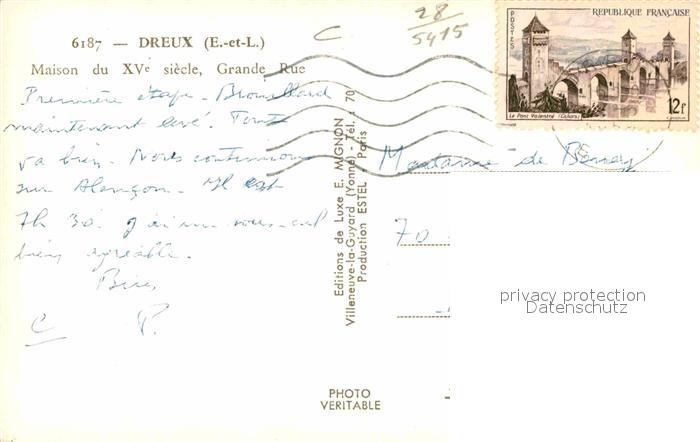 6187 — DREUX (E.-et-L.)
Maison du XVᵉ siècle, Grande Rue
C
28
5415
POSTES
REPUBLIQUE FRANÇAISE
Le Pont Valentré (Cahors)
12F
Première étape - Brouillard
maintenant levé. Tout
va bien. Nous continuons
sur Alençon. Il est
7h 30.
bien agréable.
P.
C
Editions de Luxe E. MIGNON
Villeneuve-la-Guyard (Yonne) - Tél. : 70
Production ESTEL - Paris
Madame de
70
privacy protection
Datenschutz
PHOTO
VERITABLE